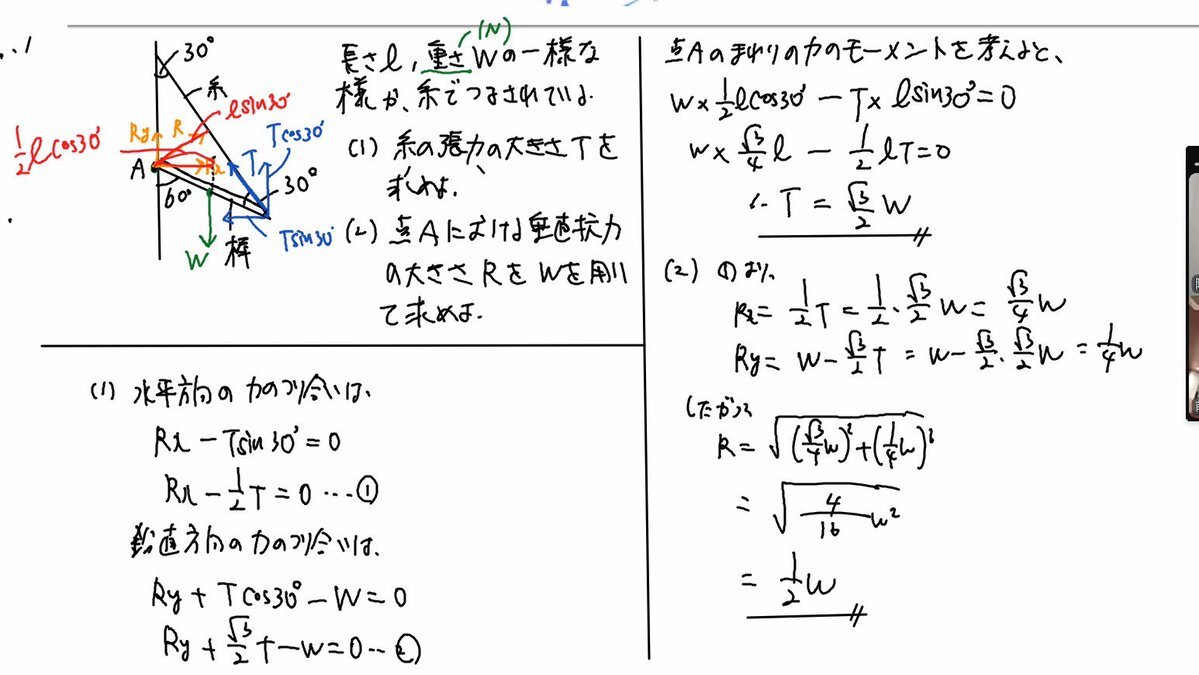 .. 1
30°
糸
lsin30°
Ry
R
Rx
1/2 lcos30°
A
T
Tcos30°
30°
60°
Tsin30°
W
棒
(N)
長さl, 重さWの一様な
様が、糸でつるされている.
(1) 糸の張力の大きさTを
求めよ.
(2) 点Aにおける垂直抗力
の大きさRをWを用い
て求めよ.
(1) 水平方向の力のつり合いは、
Rx - Tsin30° = 0
Rx - 1/2 T = 0 … ①
鉛直方向の力のつり合いは、
Ry + Tcos30° - W = 0
Ry + √3/2 T - W = 0 … ②
点Aのまわりの力のモーメントを考えると、
W × 1/2 lcos30° - T × lsin30° = 0
W × √3/4 l - 1/2 lT = 0
∴ T = √3/2 W
(2) ①より、
Rx = 1/2 T = 1/2 · √3/2 W = √3/4 W
Ry = W - √3/2 T = W - √3/2 · √3/2 W = 1/4 W
したがって
R = √((√3/4 W)² + (1/4 W)²)
= √(4/16 W²)
= 1/2 W